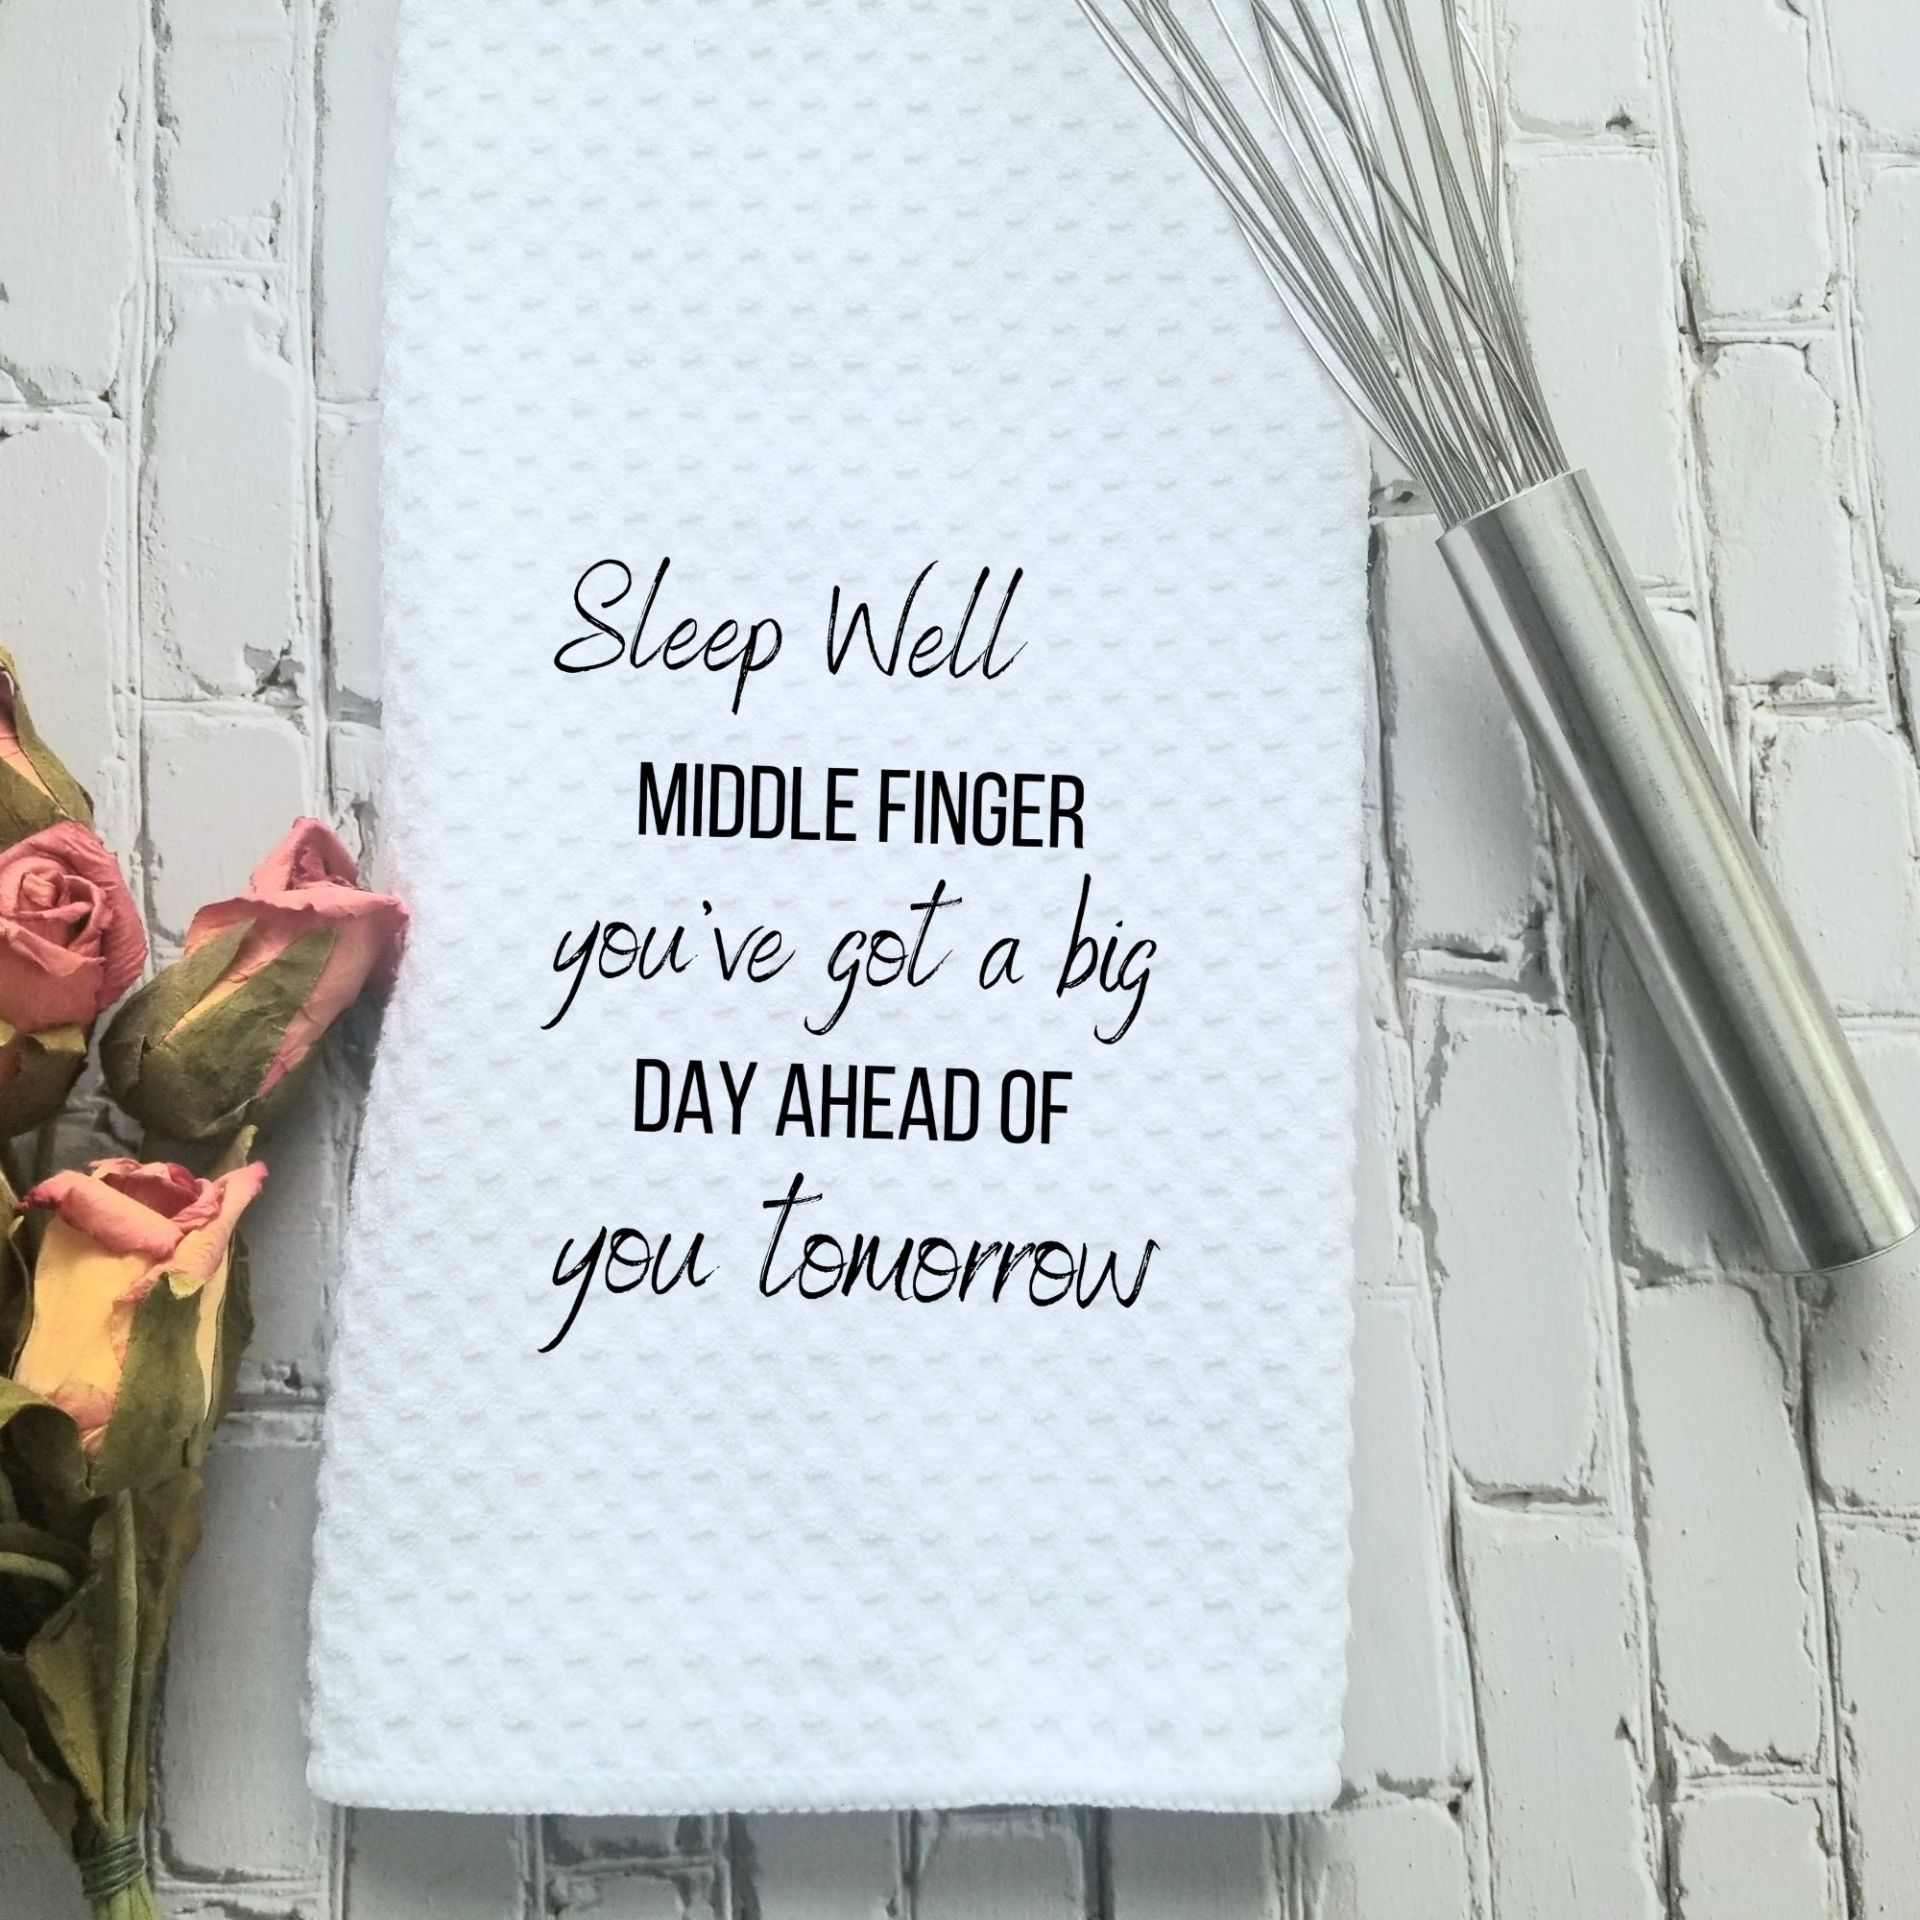 Sleep Well
MIDDLE FINGER
you've got a big
DAY AHEAD OF
you tomorrow